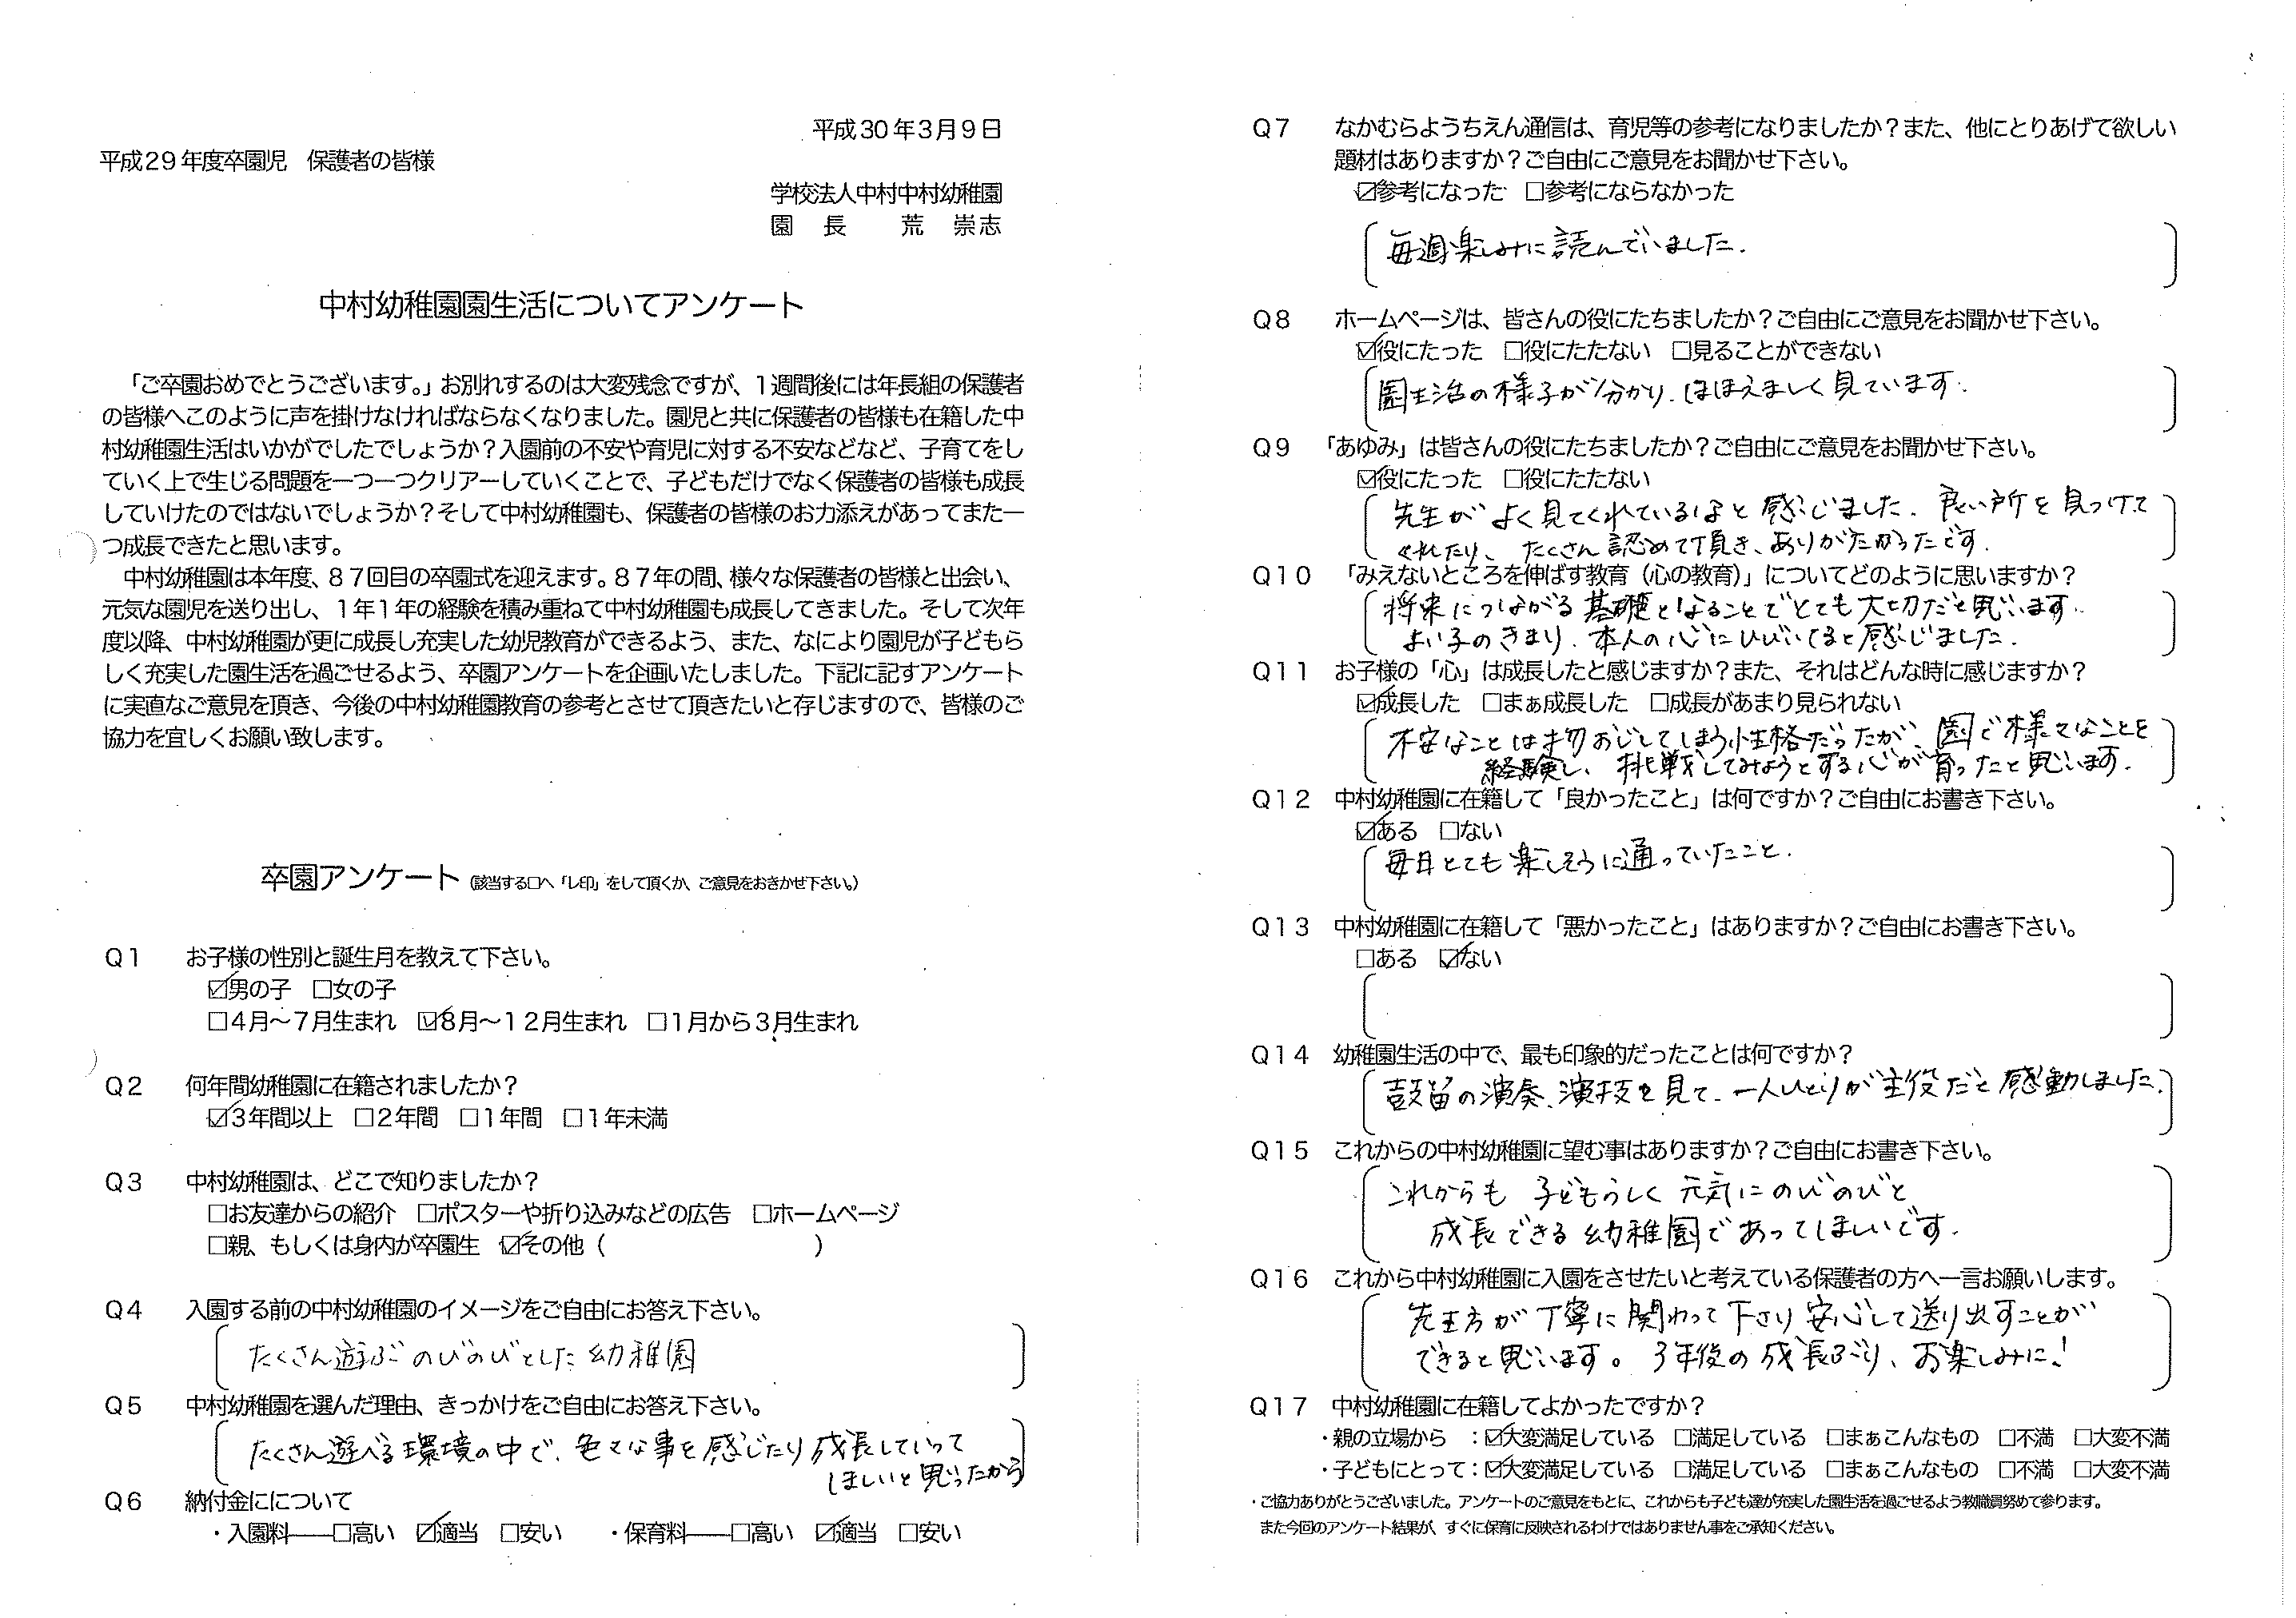 平成30年3月9日
平成29年度卒園児　保護者の皆様
学校法人中村中村幼稚園
園　長　　荒　崇志
中村幼稚園園生活についてアンケート
「ご卒園おめでとうございます。」お別れするのは大変残念ですが、1週間後には年長組の保護者
の皆様へこのように声を掛けなければならなくなりました。園児と共に保護者の皆様も在籍した中
村幼稚園生活はいかがでしたでしょうか？入園前の不安や育児に対する不安などなど、子育てをし
ていく上で生じる問題を一つ一つクリアーしていくことで、子どもだけでなく保護者の皆様も成長
していけたのではないでしょうか？そして中村幼稚園も、保護者の皆様のお力添えがあってまた一
つ成長できたと思います。
中村幼稚園は本年度、87回目の卒園式を迎えます。87年の間、様々な保護者の皆様と出会い、
元気な園児を送り出し、1年1年の経験を積み重ねて中村幼稚園も成長してきました。そして次年
度以降、中村幼稚園が更に成長し充実した幼児教育ができるよう、また、なにより園児が子どもら
しく充実した園生活を過ごせるよう、卒園アンケートを企画いたしました。下記に記すアンケート
に実直なご意見を頂き、今後の中村幼稚園教育の参考とさせて頂きたいと存じますので、皆様のご
協力を宜しくお願い致します。
卒園アンケート（該当する□へ「レ印」をして頂くか、ご意見をおきかせ下さい。）
Q1　お子様の性別と誕生月を教えて下さい。
☑男の子　□女の子
□4月～7月生まれ　☑8月～12月生まれ　□1月から3月生まれ
Q2　何年間幼稚園に在籍されましたか？
☑3年間以上　□2年間　□1年間　□1年未満
Q3　中村幼稚園は、どこで知りましたか？
□お友達からの紹介　□ポスターや折り込みなどの広告　□ホームページ
□親、もしくは身内が卒園生　☑その他（　　　　　　　　　　）
Q4　入園する前の中村幼稚園のイメージをご自由にお答え下さい。
たくさん遊ぶ のびのびとした 幼稚園
Q5　中村幼稚園を選んだ理由、きっかけをご自由にお答え下さい。
たくさん遊べる環境の中で、色々な事を感じたり成長していって
ほしいと思ったから
Q6　納付金にについて
・入園料――□高い　☑適当　□安い　　・保育料――□高い　☑適当　□安い
Q7　なかむらようちえん通信は、育児等の参考になりましたか？また、他にとりあげて欲しい
題材はありますか？ご自由にご意見をお聞かせ下さい。
☑参考になった　□参考にならなかった
毎週楽しみに読んでいました.
Q8　ホームページは、皆さんの役にたちましたか？ご自由にご意見をお聞かせ下さい。
☑役にたった　□役にたたない　□見ることができない
園生活の様子が分かり、ほほえましく見ています.
Q9　「あゆみ」は皆さんの役にたちましたか？ご自由にご意見をお聞かせ下さい。
☑役にたった　□役にたたない
先生がよく見てくれているなと感じました. 良い所を見つけて
くれたり、たくさん認めて頂き、ありがたかったです.
Q10　「みえないところを伸ばす教育（心の教育）」についてどのように思いますか？
将来につながる基礎となることでとても大切だと思います.
よい子のきまり、本人の心にひびいてると感じました.
Q11　お子様の「心」は成長したと感じますか？また、それはどんな時に感じますか？
☑成長した　□まぁ成長した　□成長があまり見られない
不安なことは物おじしてしまう性格だったが、園で様々なことを
経験し、挑戦してみようとする心が育ったと思います.
Q12　中村幼稚園に在籍して「良かったこと」は何ですか？ご自由にお書き下さい。
☑ある　□ない
毎日とても楽しそうに通っていたこと.
Q13　中村幼稚園に在籍して「悪かったこと」はありますか？ご自由にお書き下さい。
□ある　☑ない
Q14　幼稚園生活の中で、最も印象的だったことは何ですか？
鼓笛の演奏、演技を見て、一人ひとりが主役だと感動しました.
Q15　これからの中村幼稚園に望む事はありますか？ご自由にお書き下さい。
これからも 子どもらしく 元気にのびのびと
成長できる幼稚園であってほしいです.
Q16　これから中村幼稚園に入園をさせたいと考えている保護者の方へ一言お願いします。
先生方が丁寧に関わって下さり安心して送り出すことが
できると思います。 3年後の成長ぶり、お楽しみに！
Q17　中村幼稚園に在籍してよかったですか？
・親の立場から　：☑大変満足している　□満足している　□まぁこんなもの　□不満　□大変不満
・子どもにとって：☑大変満足している　□満足している　□まぁこんなもの　□不満　□大変不満
・ご協力ありがとうございました。アンケートのご意見をもとに、これからも子ども達が充実した園生活を過ごせるよう教職員努めて参ります。
また今回のアンケート結果が、すぐに保育に反映されるわけではありません事をご承知ください。